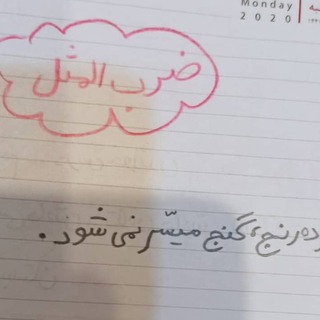 Monday
2020
ضرب المثل
رنج، گنج میسّر نمی شود.